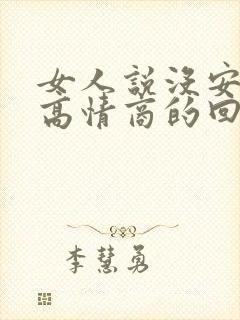 女人説没安
高情商的回
李慧勇